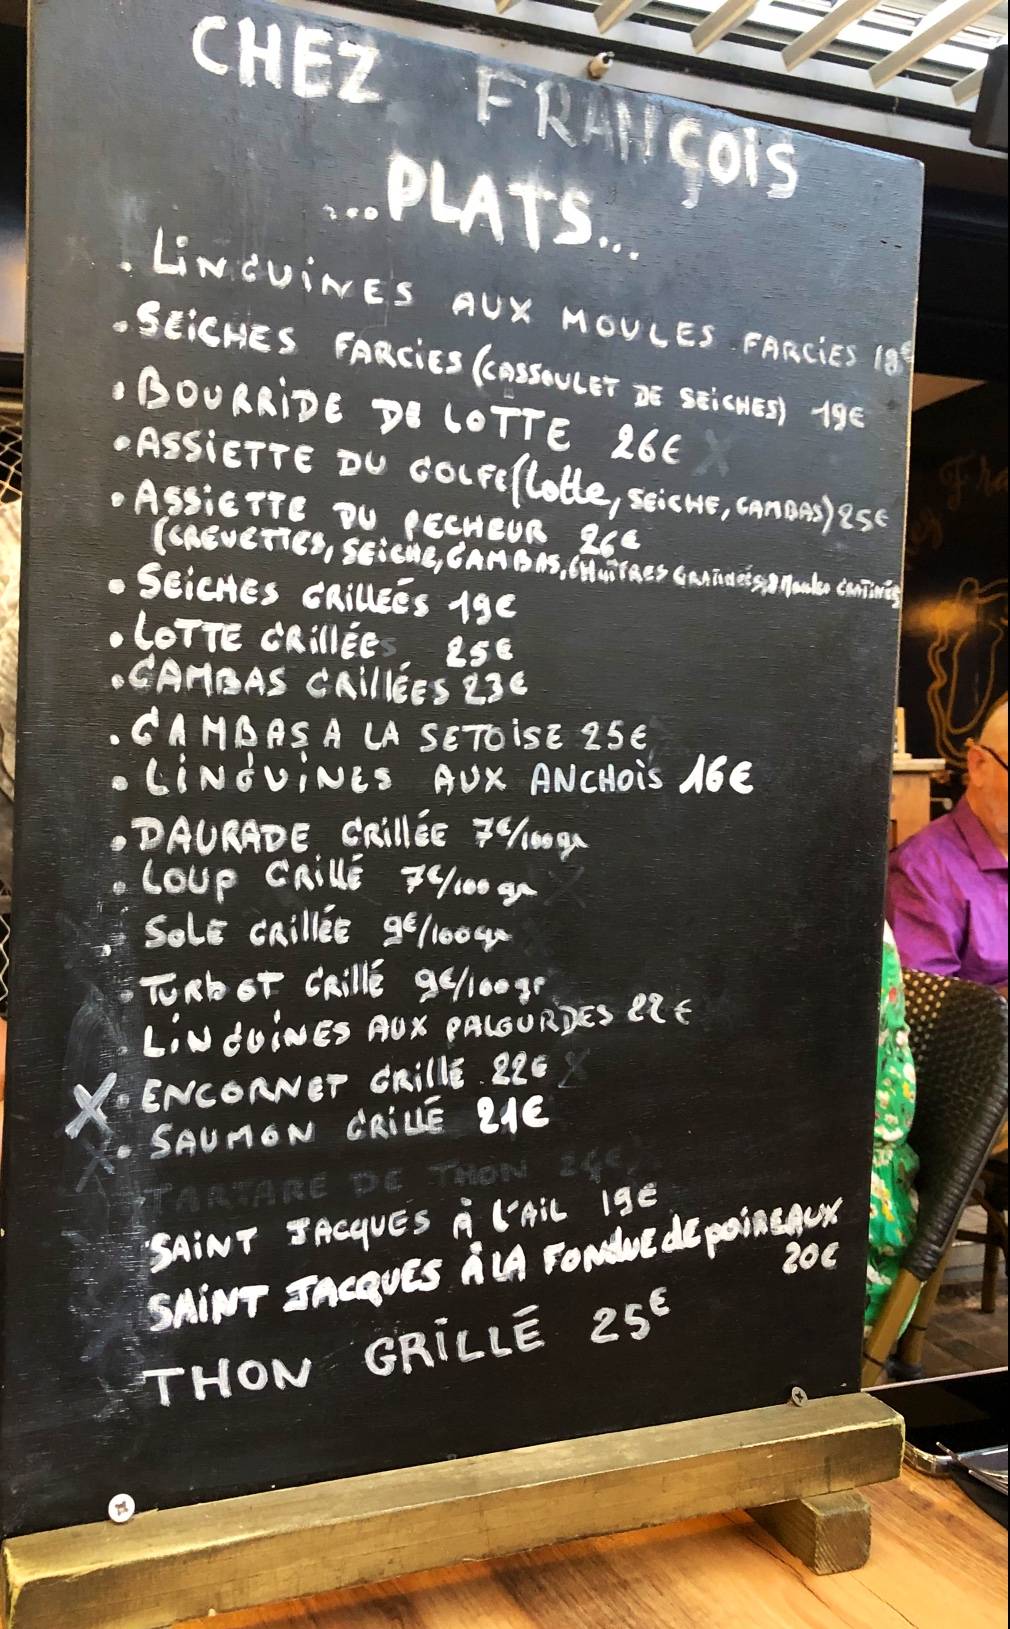 CHEZ FRANÇOIS
...PLATS...
. LINGUINES AUX MOULES FARCIES 18€
. SEICHES FARCIES (CASSOULET DE SEICHES) 19€
. BOURRIDE DE LOTTE 26€
. ASSIETTE DU GOLFE (Lotte, SEICHE, GAMBAS) 25€
. ASSIETTE DU PECHEUR 26€
(CREVETTES, SEICHE, GAMBAS, 6 HUÎTRES GRATINÉES, 8 Moules GRATINÉS
. SEICHES GRILLÉES 19€
. LOTTE GRILLÉE 25€
. GAMBAS GRILLÉES 23€
. GAMBAS A LA SETOISE 25€
. LINGUINES AUX ANCHOIS 16€
. DAURADE GRILLÉE 7€/100gr
. LOUP GRILLÉ 7€/100gr
. SOLE GRILLÉE 9€/100gr
. TURBOT GRILLÉ 9€/100gr
. LINGUINES AUX PALOURDES 22€
X . ENCORNET GRILLÉ 22€
. SAUMON GRILLÉ 21€
TARTARE DE THON 24€
SAINT JACQUES À L'AIL 19€
SAINT JACQUES À LA FONDUE de poiREAUX
20€
THON GRILLÉ 25€